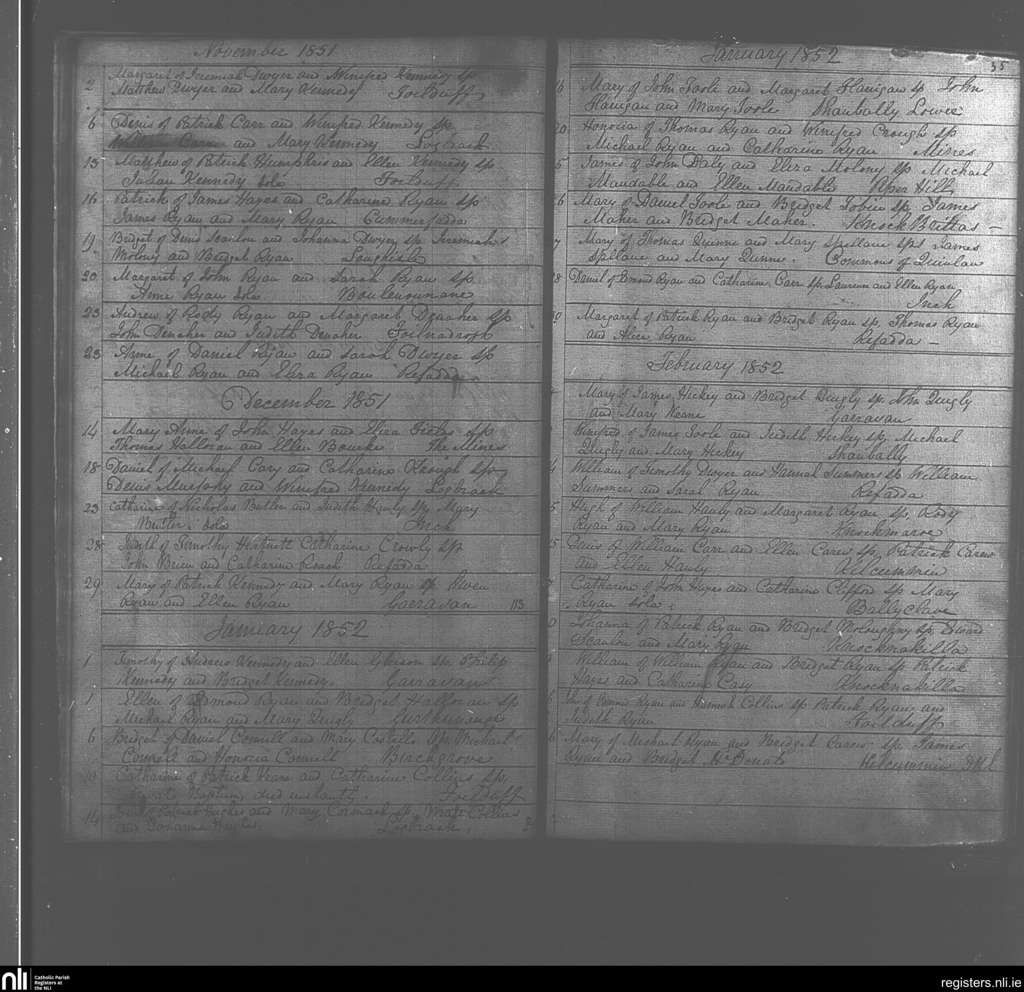 November 1851
2 Margaret of Jeremiah Dwyer and Winifred Kennedy sp
Matthew Dwyer and Mary Kennedy Foilduff
6 Denis of Patrick Carr and Winifred Kennedy sp
William Carr and Mary Kennedy Logbrack
13 Matthew of Patrick Humphris and Ellen Kennedy sp
Susan Kennedy Sola Foilduff
16 Patrick of James Hayes and Catharine Ryan sp
James Ryan and Mary Ryan Cummerfadda
19 Bridget of Denis Scanlon and Johanna Dwyer sp Jeremiah
Molony and Bridget Ryan Loughisle
20 Margaret of John Ryan and Sarah Ryan sp
Anne Ryan Sola
23 Andrew of Rody Ryan and Margaret Denaher sp
John Denaher and Judith Denaher
23 Anne of Daniel Ryan and Sarah Dwyer sp
Michael Ryan and Eliza Ryan Refadda
December 1851
14 Mary Anne of John Hayes and Eliza sp
Thomas Halloran and Ellen Bourke The Mines
18 Daniel of Michael Cary and Catharine Keough sp
Denis Murphy and Winifred Kennedy Logbrack
23 Catharine of Nicholas Butler and Judith Hanly sp Mary
Butler Sola Inch
28 Judith of Timothy Hartnett Catharine Crowly sp
John Brien and Catharine Roach Refadda
29 Mary of Patrick Kennedy and Mary Ryan sp Owen
Ryan and Ellen Ryan Garravan 113
January 1852
1 Timothy of Andrew Kennedy and Ellen Gleeson sp Philip
Kennedy and Bridget Kennedy Garravan
1 Ellen of Edmond Ryan and Bridget Halloran sp
Michael Ryan and Mary Quigly
6 Bridget of Daniel Connell and Mary Costello sp Michael
Connell and Honoria Connell Birchgrove
10 Catharine of Patrick Keane and Catharine Collins sp
Foilduff
14 Hughes and Mary Cormack sp Matt Collins
and Johanna Hughes Logbrack
January 1852
35
6 Mary of John Toole and Margaret Flanigan sp John
Flanigan and Mary Toole Shanbally Lower
20 Honoria of Thomas Ryan and Winifred Crough sp
Michael Ryan and Catharine Ryan Mines
5 James of John Daly and Eliza Molony sp Michael
Mandable and Ellen Mandable Uper Hill
6 Mary of Daniel Toole and Bridget Tobin sp James
Maher and Bridget Maher Knock Brittas
7 Mary of Thomas Quinne and Mary Spellane sps James
Spellane and Mary Dunne Commons of Quinlan
8 Daniel of Edmond Ryan and Catharine Carr sp Laurence and Ellen Ryan
Inch
Margaret of Patrick Ryan and Bridget Ryan sp Thomas Ryan
and Alice Ryan Refadda
February 1852
Mary of James Hickey and Bridget Quigly sp John Quigly
and Mary Keane Garravan
Winifred of James Toole and Judith Hickey sp Michael
Quigly and Mary Hickey Shanbally
4 William of Timothy Dwyer and Hannah Summers sp William
Summers and Sarah Ryan Refadda
5 Hugh of William Hanly and Margaret Ryan sp Rody
Ryan and Mary Ryan Knockmaroe
5 Denis of William Carr and Ellen Carew sp Patrick Carew
and Ellen Hanly Kilcummin
Catharine of John Hayes and Catharine Clifford sp Mary
Ryan Sola Ballyclave
0 Johanna of Patrick Ryan and Bridget Moloughny sp David
Scanlon and Mary Ryan Knocknakilla
William of William Ryan and Bridget Ryan sp Patrick
Hayes and Catharine Casy Knocknakilla
Ryan and Hannah Collins sp Patrick Ryan and
Judith Ryan
6 Mary of Michael Ryan and Bridget Carew sp James
Ryan and Bridget McDonald Kilcummin
nli
Catholic Parish
Registers at
the NLI
registers.nli.ie